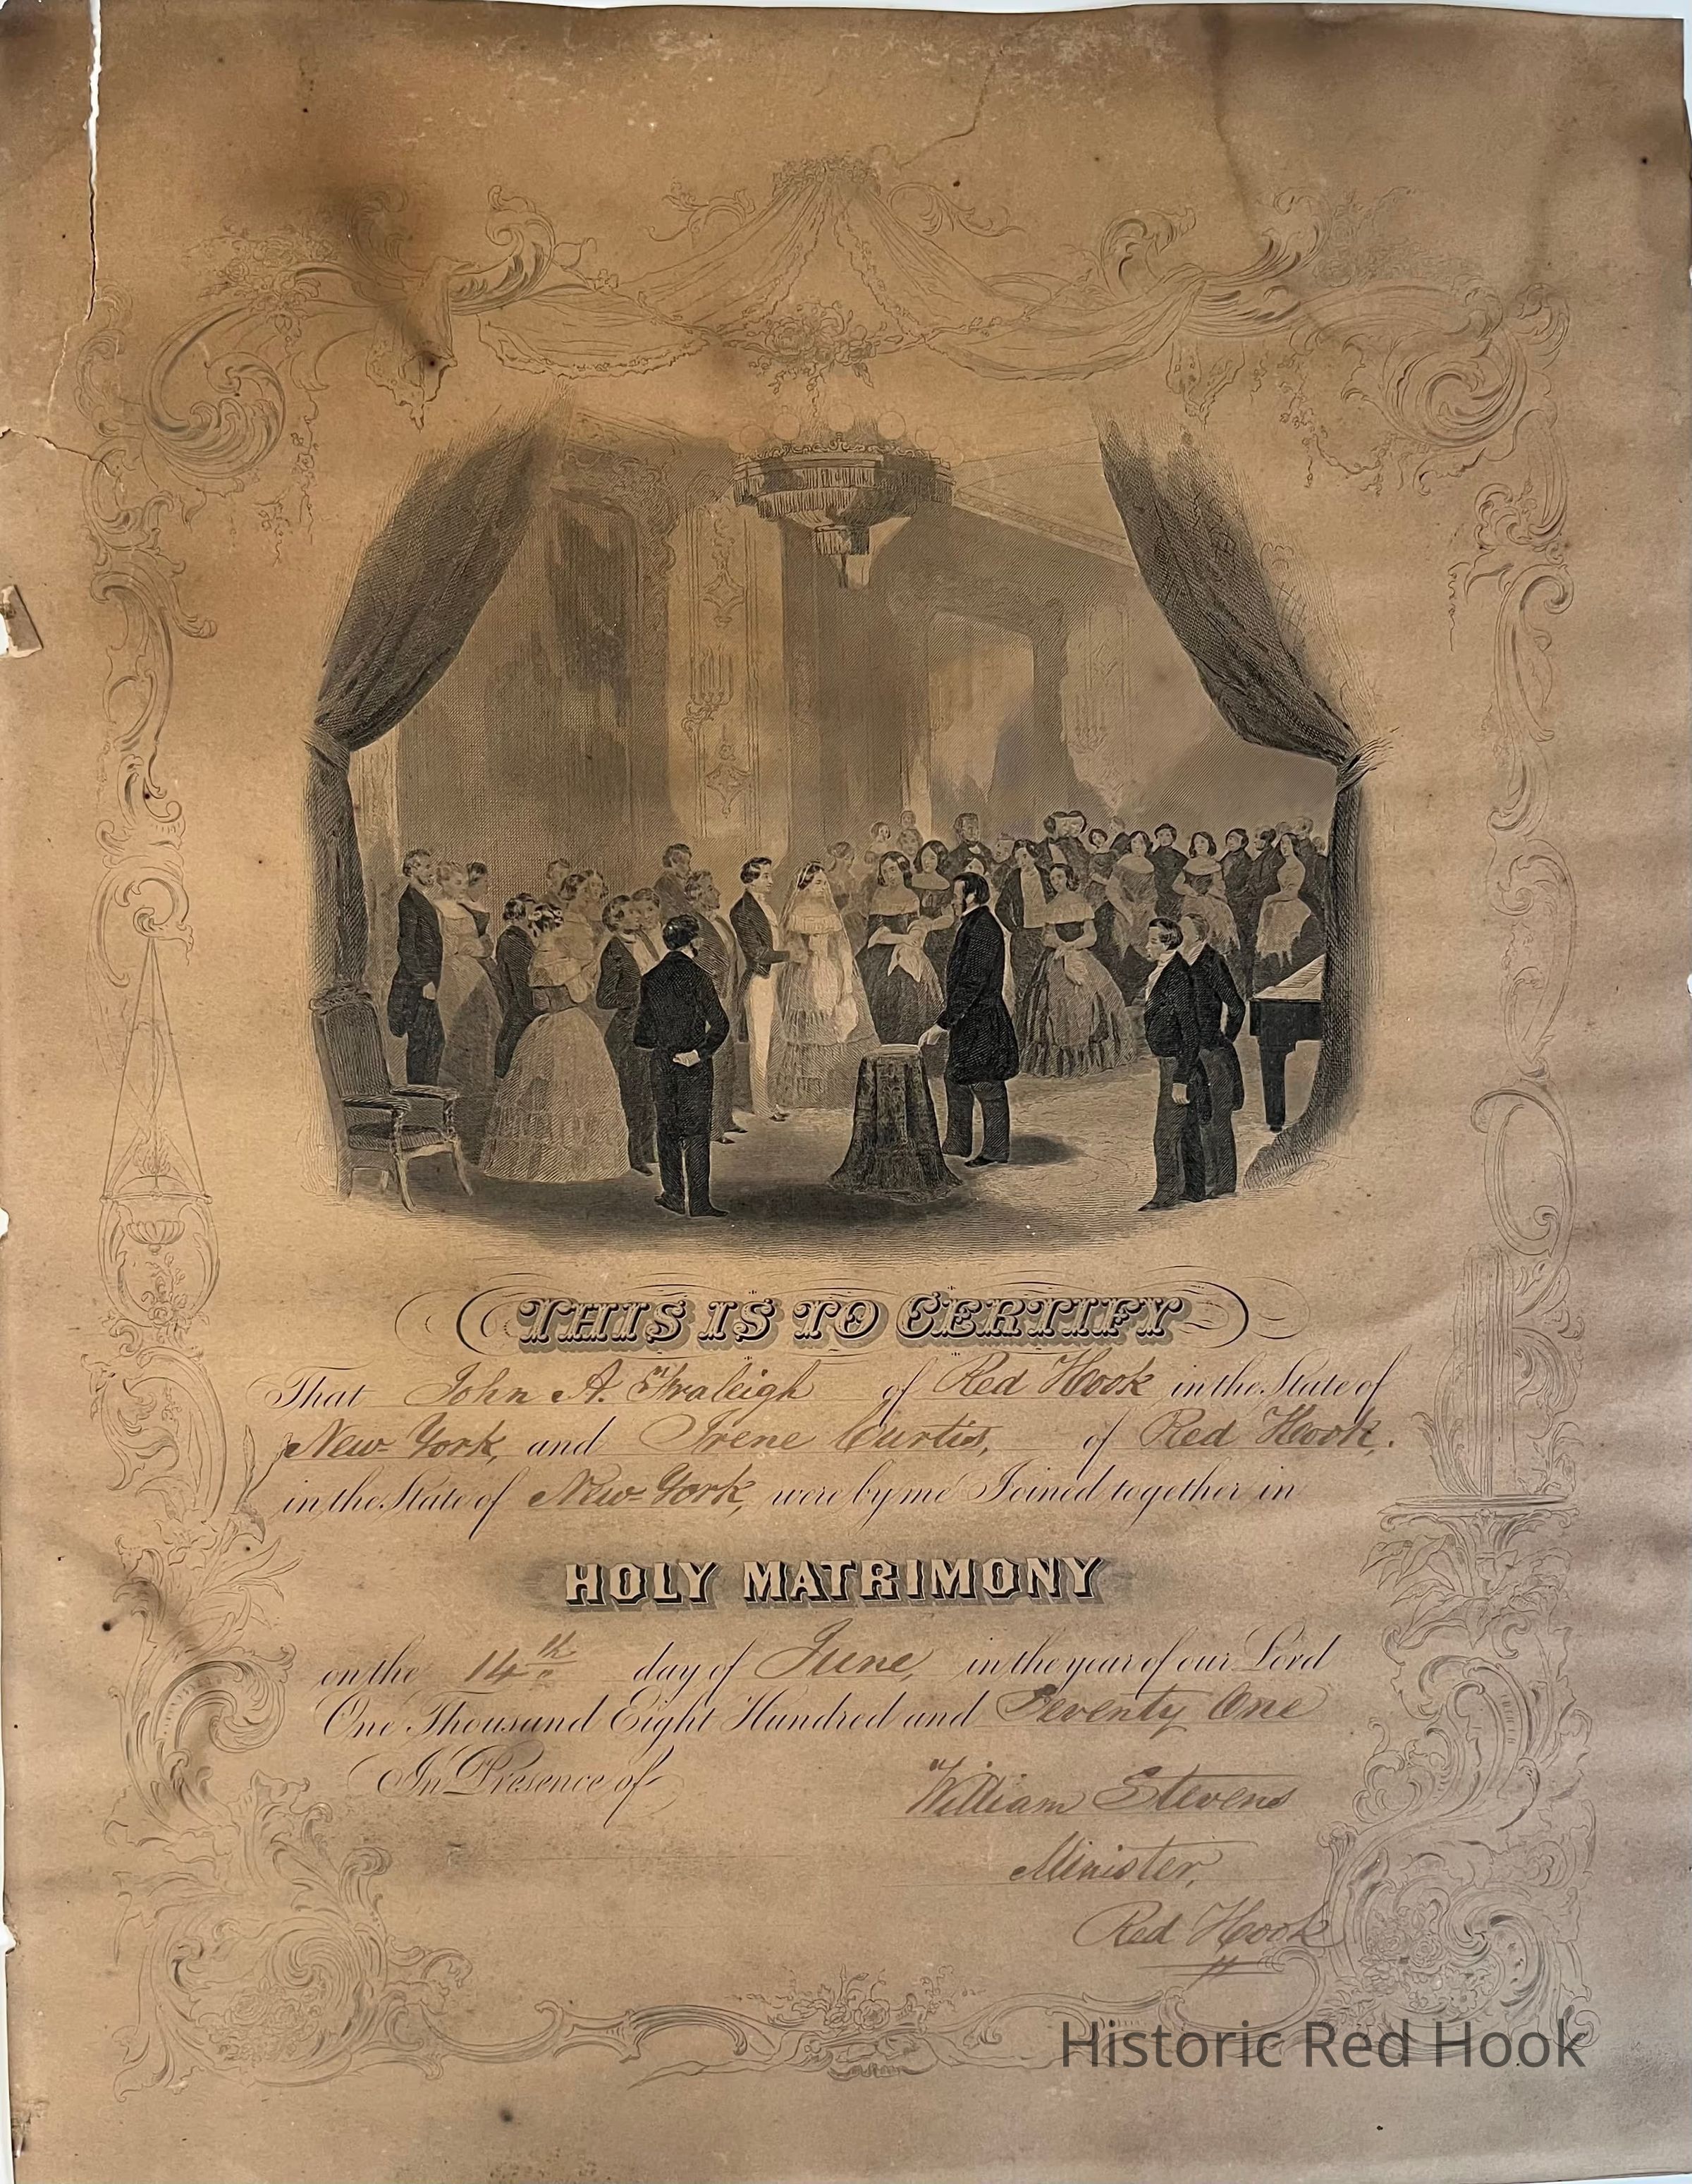 THIS IS TO CERTIFY
That John A. Fraleigh of Red Hook in the State of
New York, and Irene Curtis, of Red Hook,
in the State of New-York, were by me Joined together in
HOLY MATRIMONY
on the 14th day of June, in the year of our Lord
One Thousand Eight Hundred and Seventy One
In Presence of
William Stevens
Minister,
Red Hook
Historic Red Hook